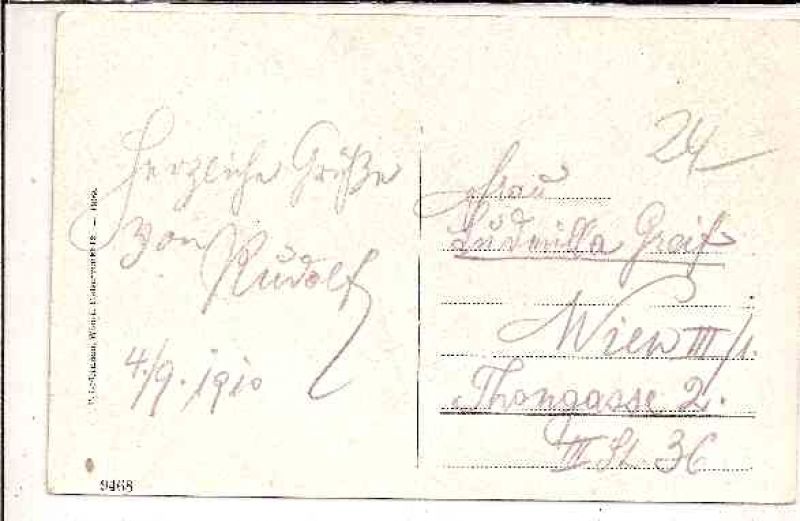 Herzliche Grüße
von
Rudolf
4./9. 1910
24
Frau
Ludmilla Greif
Wien III/1.
Thongasse 2.
III St. 36
9468